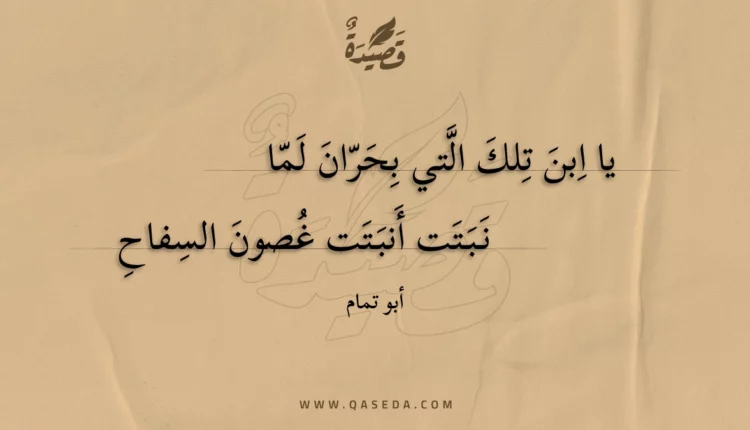 قَصِيدَةٌ
يا اِبنَ تِلكَ الَّتي بِحَرّانَ لَمّا
نَبَتَت أَنبَتَت غُصونَ السِفاحِ
أبو تمام
WWW.QASEDA.COM